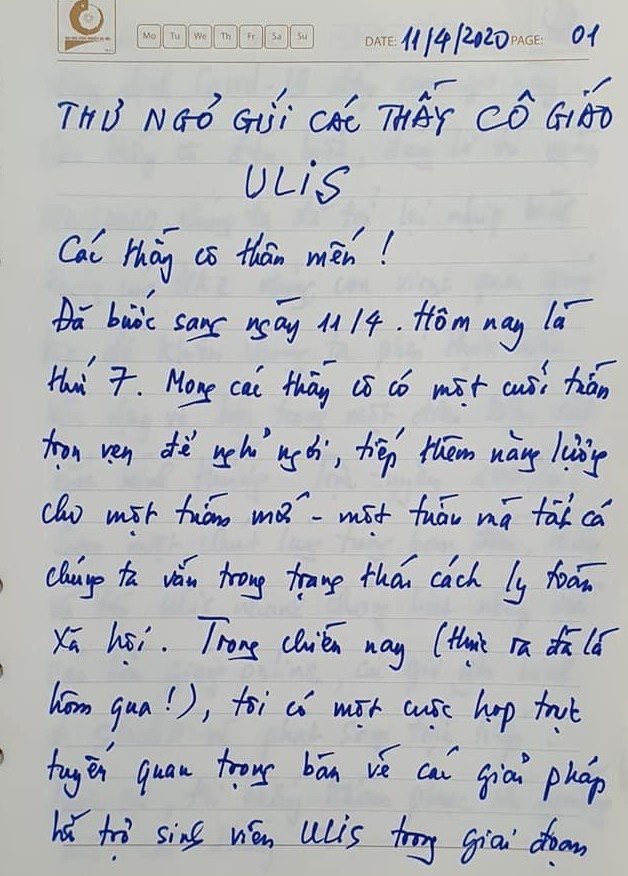 Mo Tu We Th Fr Sa Su DATE: 11/4/2020 PAGE: 01
THƯ NGỎ GỬI CÁC THẦY CÔ GIÁO
ULIS
Các thầy cô thân mến !
Đã bước sang ngày 11/4. Hôm nay là
thứ 7. Mong các thầy cô có một cuối tuần
trọn vẹn để nghỉ ngơi, tiếp thêm năng lượng
cho một tuần mới - một tuần mà tất cả
chúng ta vẫn trong trạng thái cách ly toàn
xã hội. Trong chiều nay (thực ra đã là
hôm qua!), tôi có một cuộc họp trực
tuyến quan trọng bàn về các giải pháp
hỗ trợ sinh viên ULIS trong giai đoạn